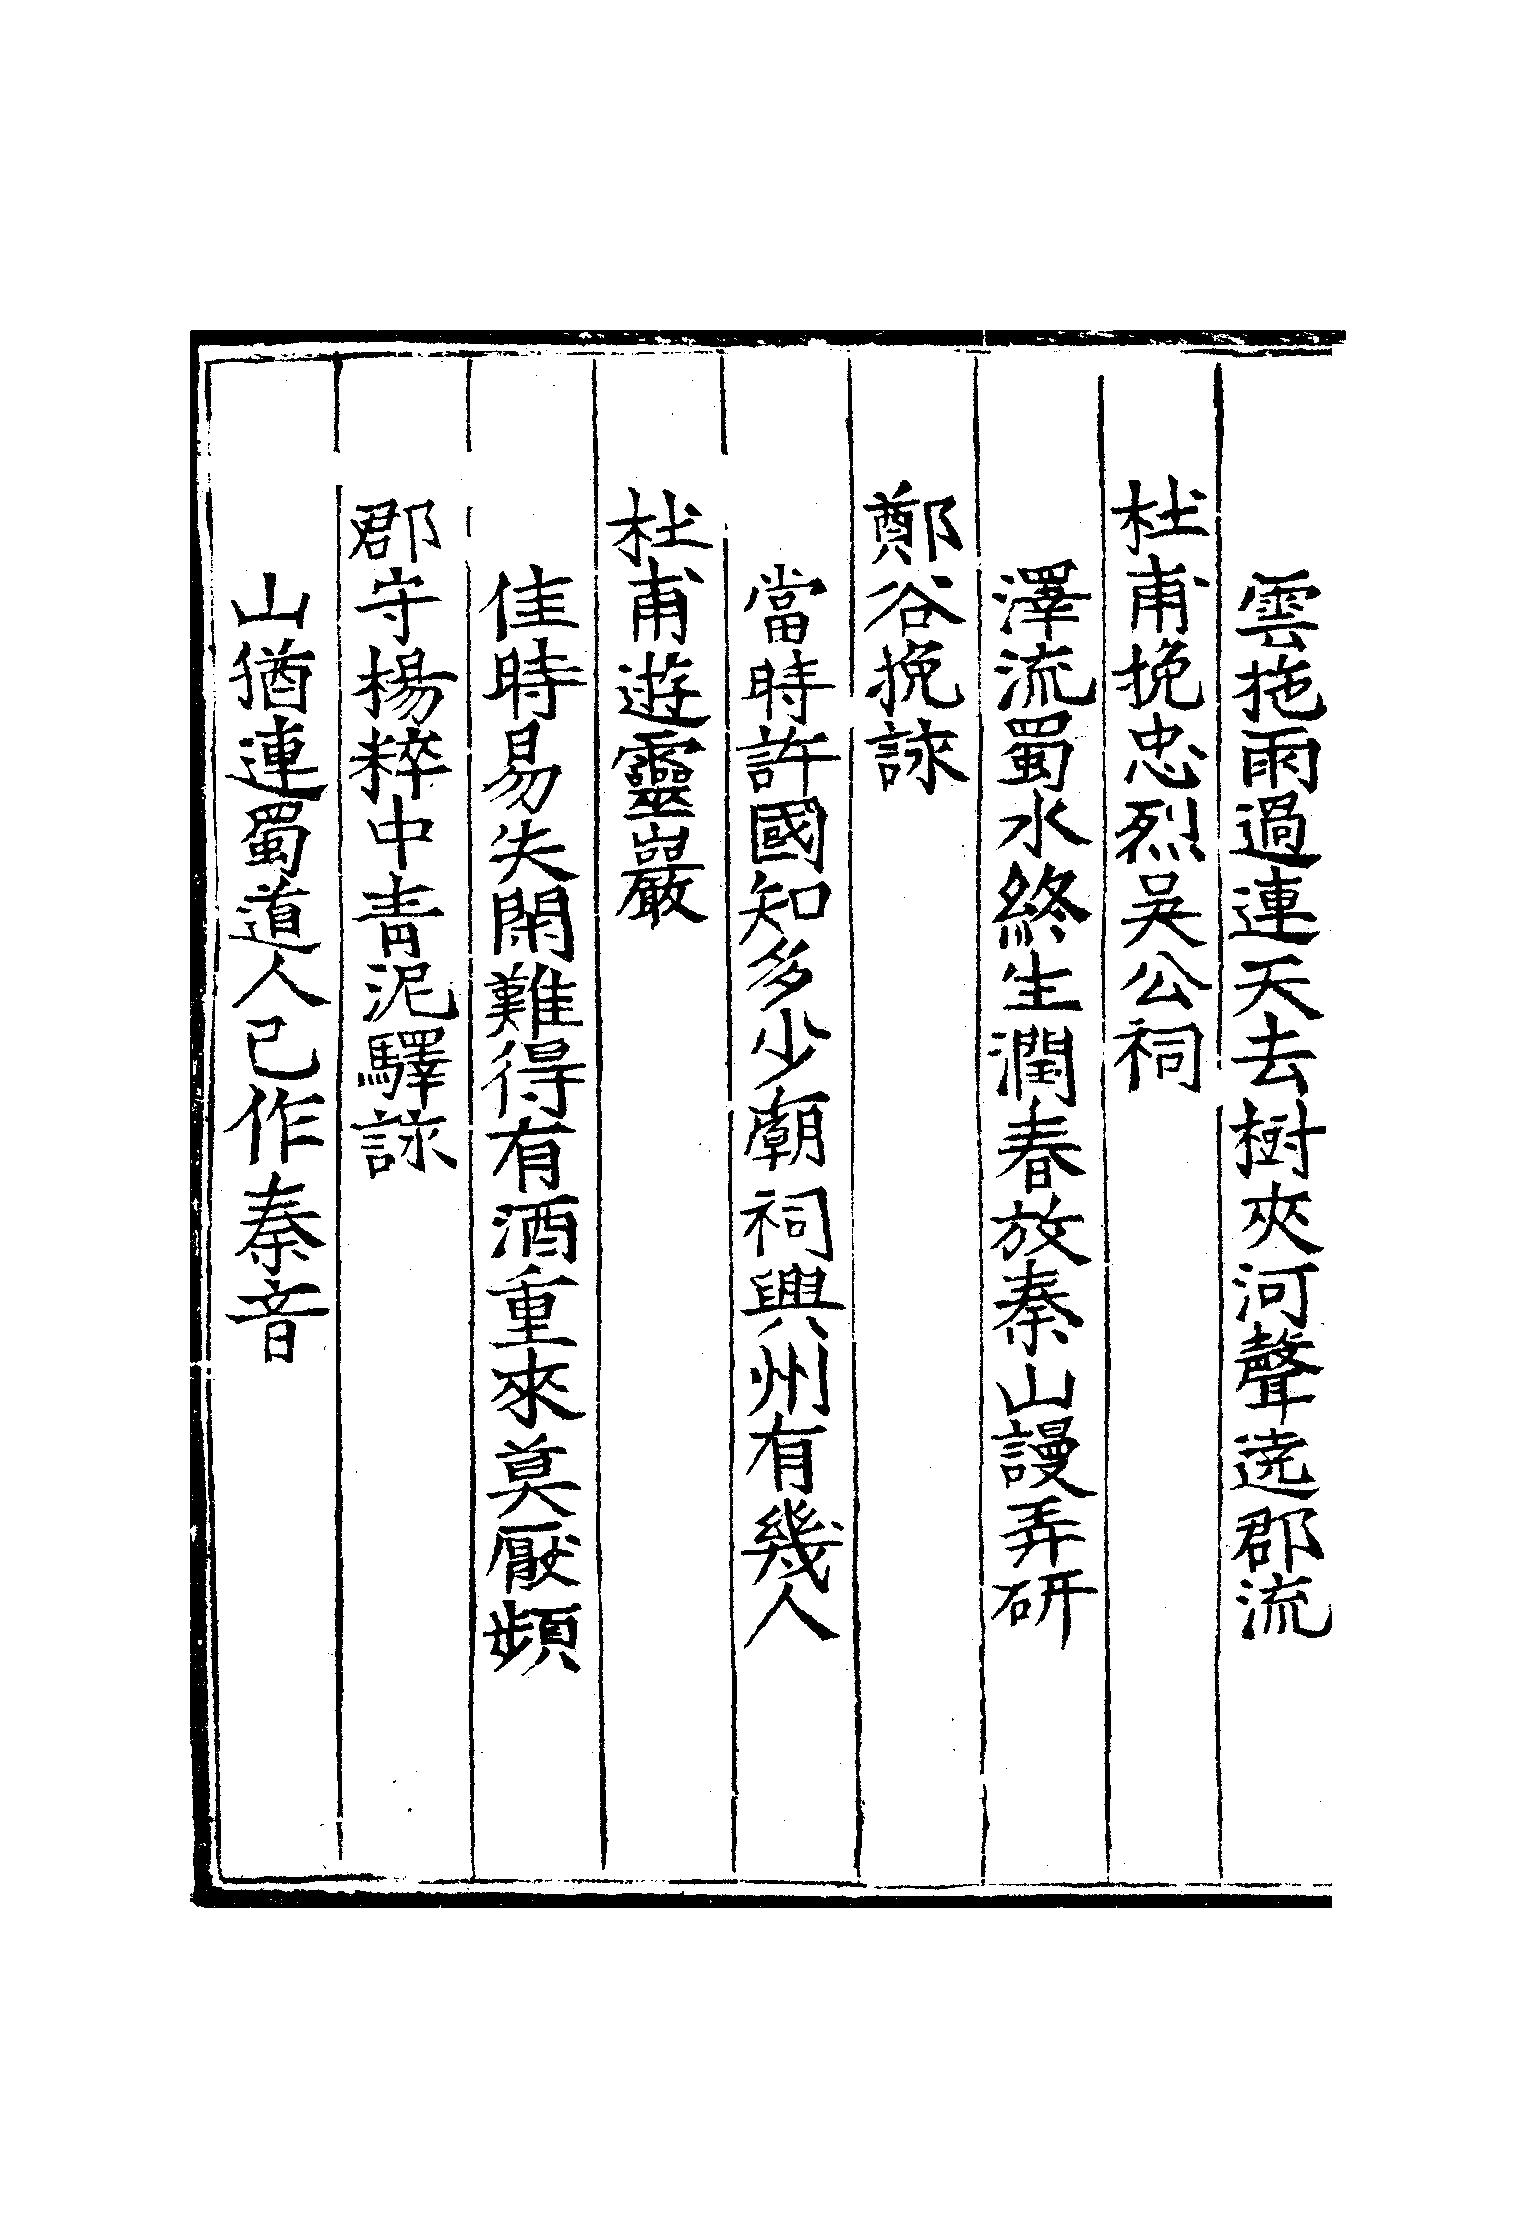 雲拖雨過連天去樹夾河聲遶郡流
杜甫挽忠烈吳公祠
澤流蜀水終生潤春放秦山謾弄研
鄭谷挽詠
當時許國知多少廟祠興州有幾人
杜甫遊靈巖
佳時易失閑難得有酒重來莫厭頻
郡守楊粹中青泥驛詠
山猶連蜀道人已作秦音